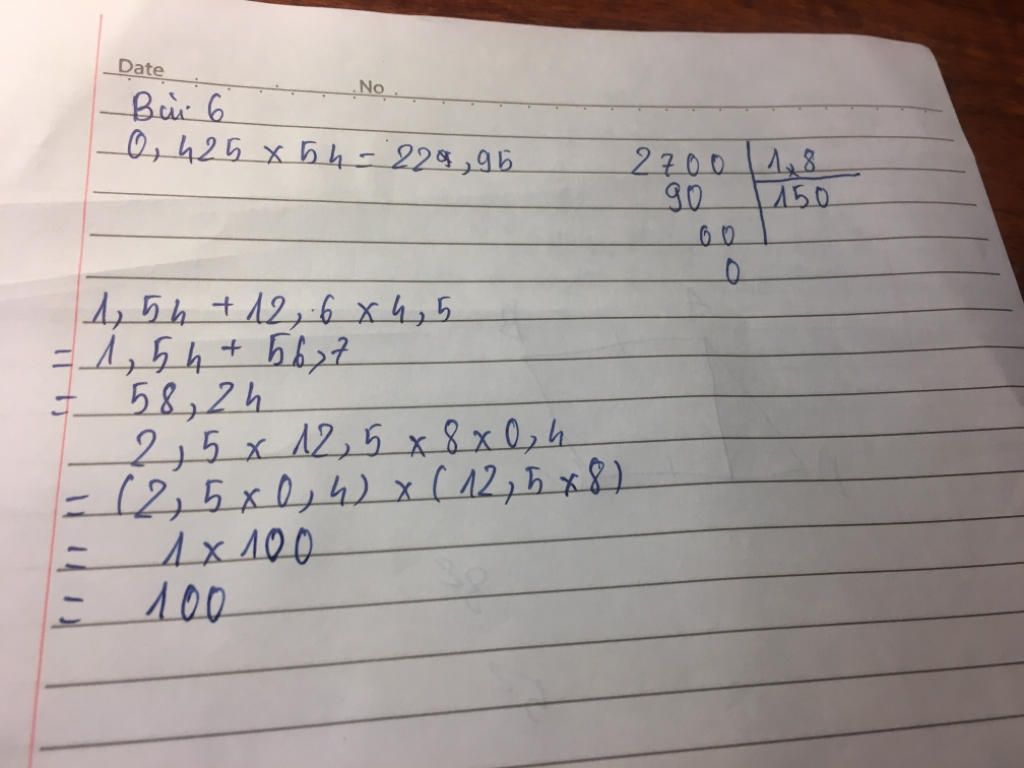 Date No
Bài 6
0,425 x 54 = 229,95
2700 1,8
90 150
00
0
1,54 + 12,6 x 4,5
= 1,54 + 56,7
= 58,24
2,5 x 12,5 x 8 x 0,4
= (2,5 x 0,4) x (12,5 x 8)
= 1 x 100
= 100